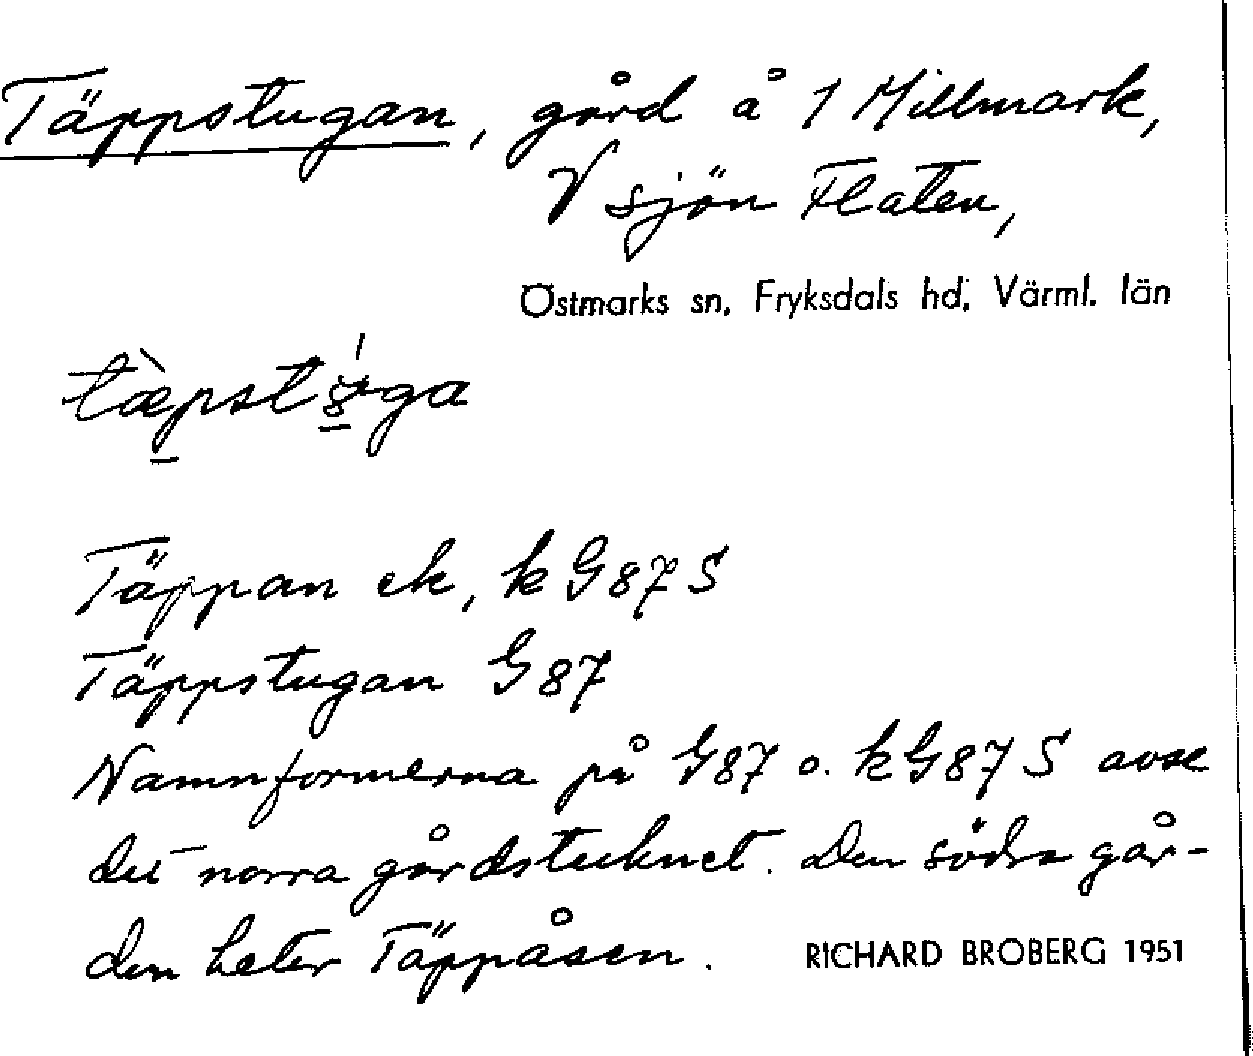 Täppstugan, gård å 1 Millmark,
V sjön Flaten,
Östmarks sn, Fryksdals hd, Värml. län
Täppan ek, k G87 S
Täppstugan G 87
Namnformerna på G87 o. k G87 S avse
det norra gårdstecknet. Den södra går-
den heter Täppåsen.
RICHARD BROBERG 1951